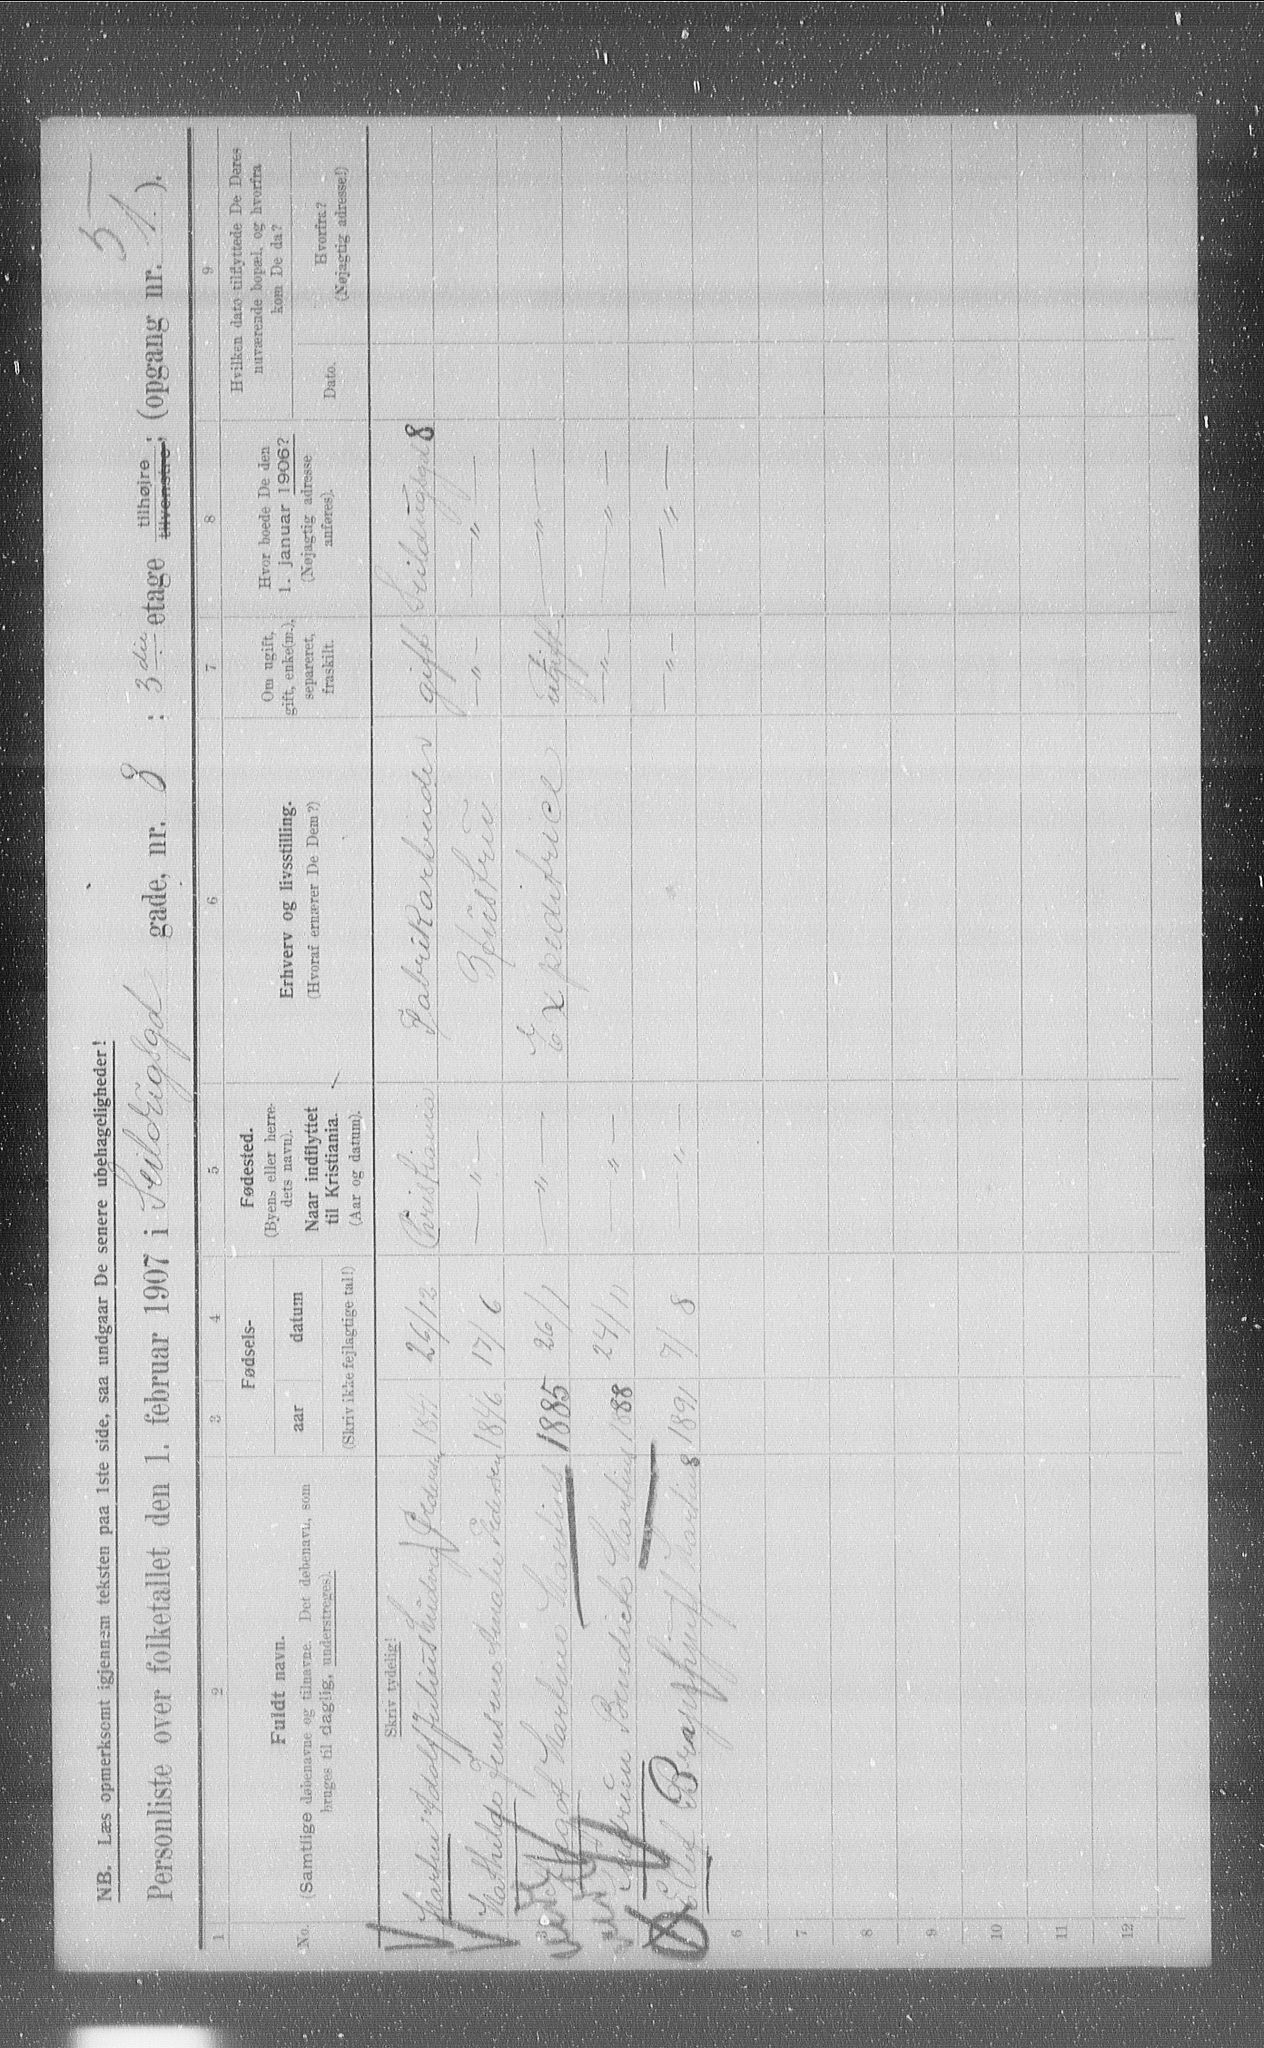 5
NB. Læs opmerksomt igjennem teksten paa 1ste side, saa undgaar De senere ubehageligheder!
Personliste over folketallet den 1. februar 1907 i Seildugsgd gade, nr. 8 : 3die etage tilhøjre ; tilvenstre ; (opgang nr. 1).
1 2 3 4 5 6 7 8 9
No. Fuldt navn. (Samtlige døbenavne og tilnavne. Det døbenavn, som bruges til daglig, understreges).
Fødsels- aar datum (Skriv ikke fejlagtige tal!)
Fødested. (Byens eller herredets navn). Naar indflyttet til Kristiania. (Aar og datum).
Erhverv og livsstilling. (Hvoraf ernærer De Dem?)
Om ugift, gift, enke(m.), separeret, fraskilt.
Hvor boede De den 1. januar 1906? (Nøjagtig adresse anføres).
Hvilken dato tilflyttede De Deres nuværende bopæl, og hvorfra kom De da?
Dato. Hvorfra? (Nøjagtig adresse!)
Skriv tydelig!
Martin Adolf Julius Ludvig Pedersen 26/12 Christiania Fabrikarbeider gift Seildugsgd 8
Mathilde Jensine Amalie Pedersen 1846 17/6 —"— Hustru —"— —"—
3 Dagot Martine Martins 1885 26/1 —"— Expeditrice ugift —"—
Bendicte Martins 1888 24/11 —"— —"— —"—
Martins 1891 7/8 —"— —"— —"—
6
7
8
9
10
11
12